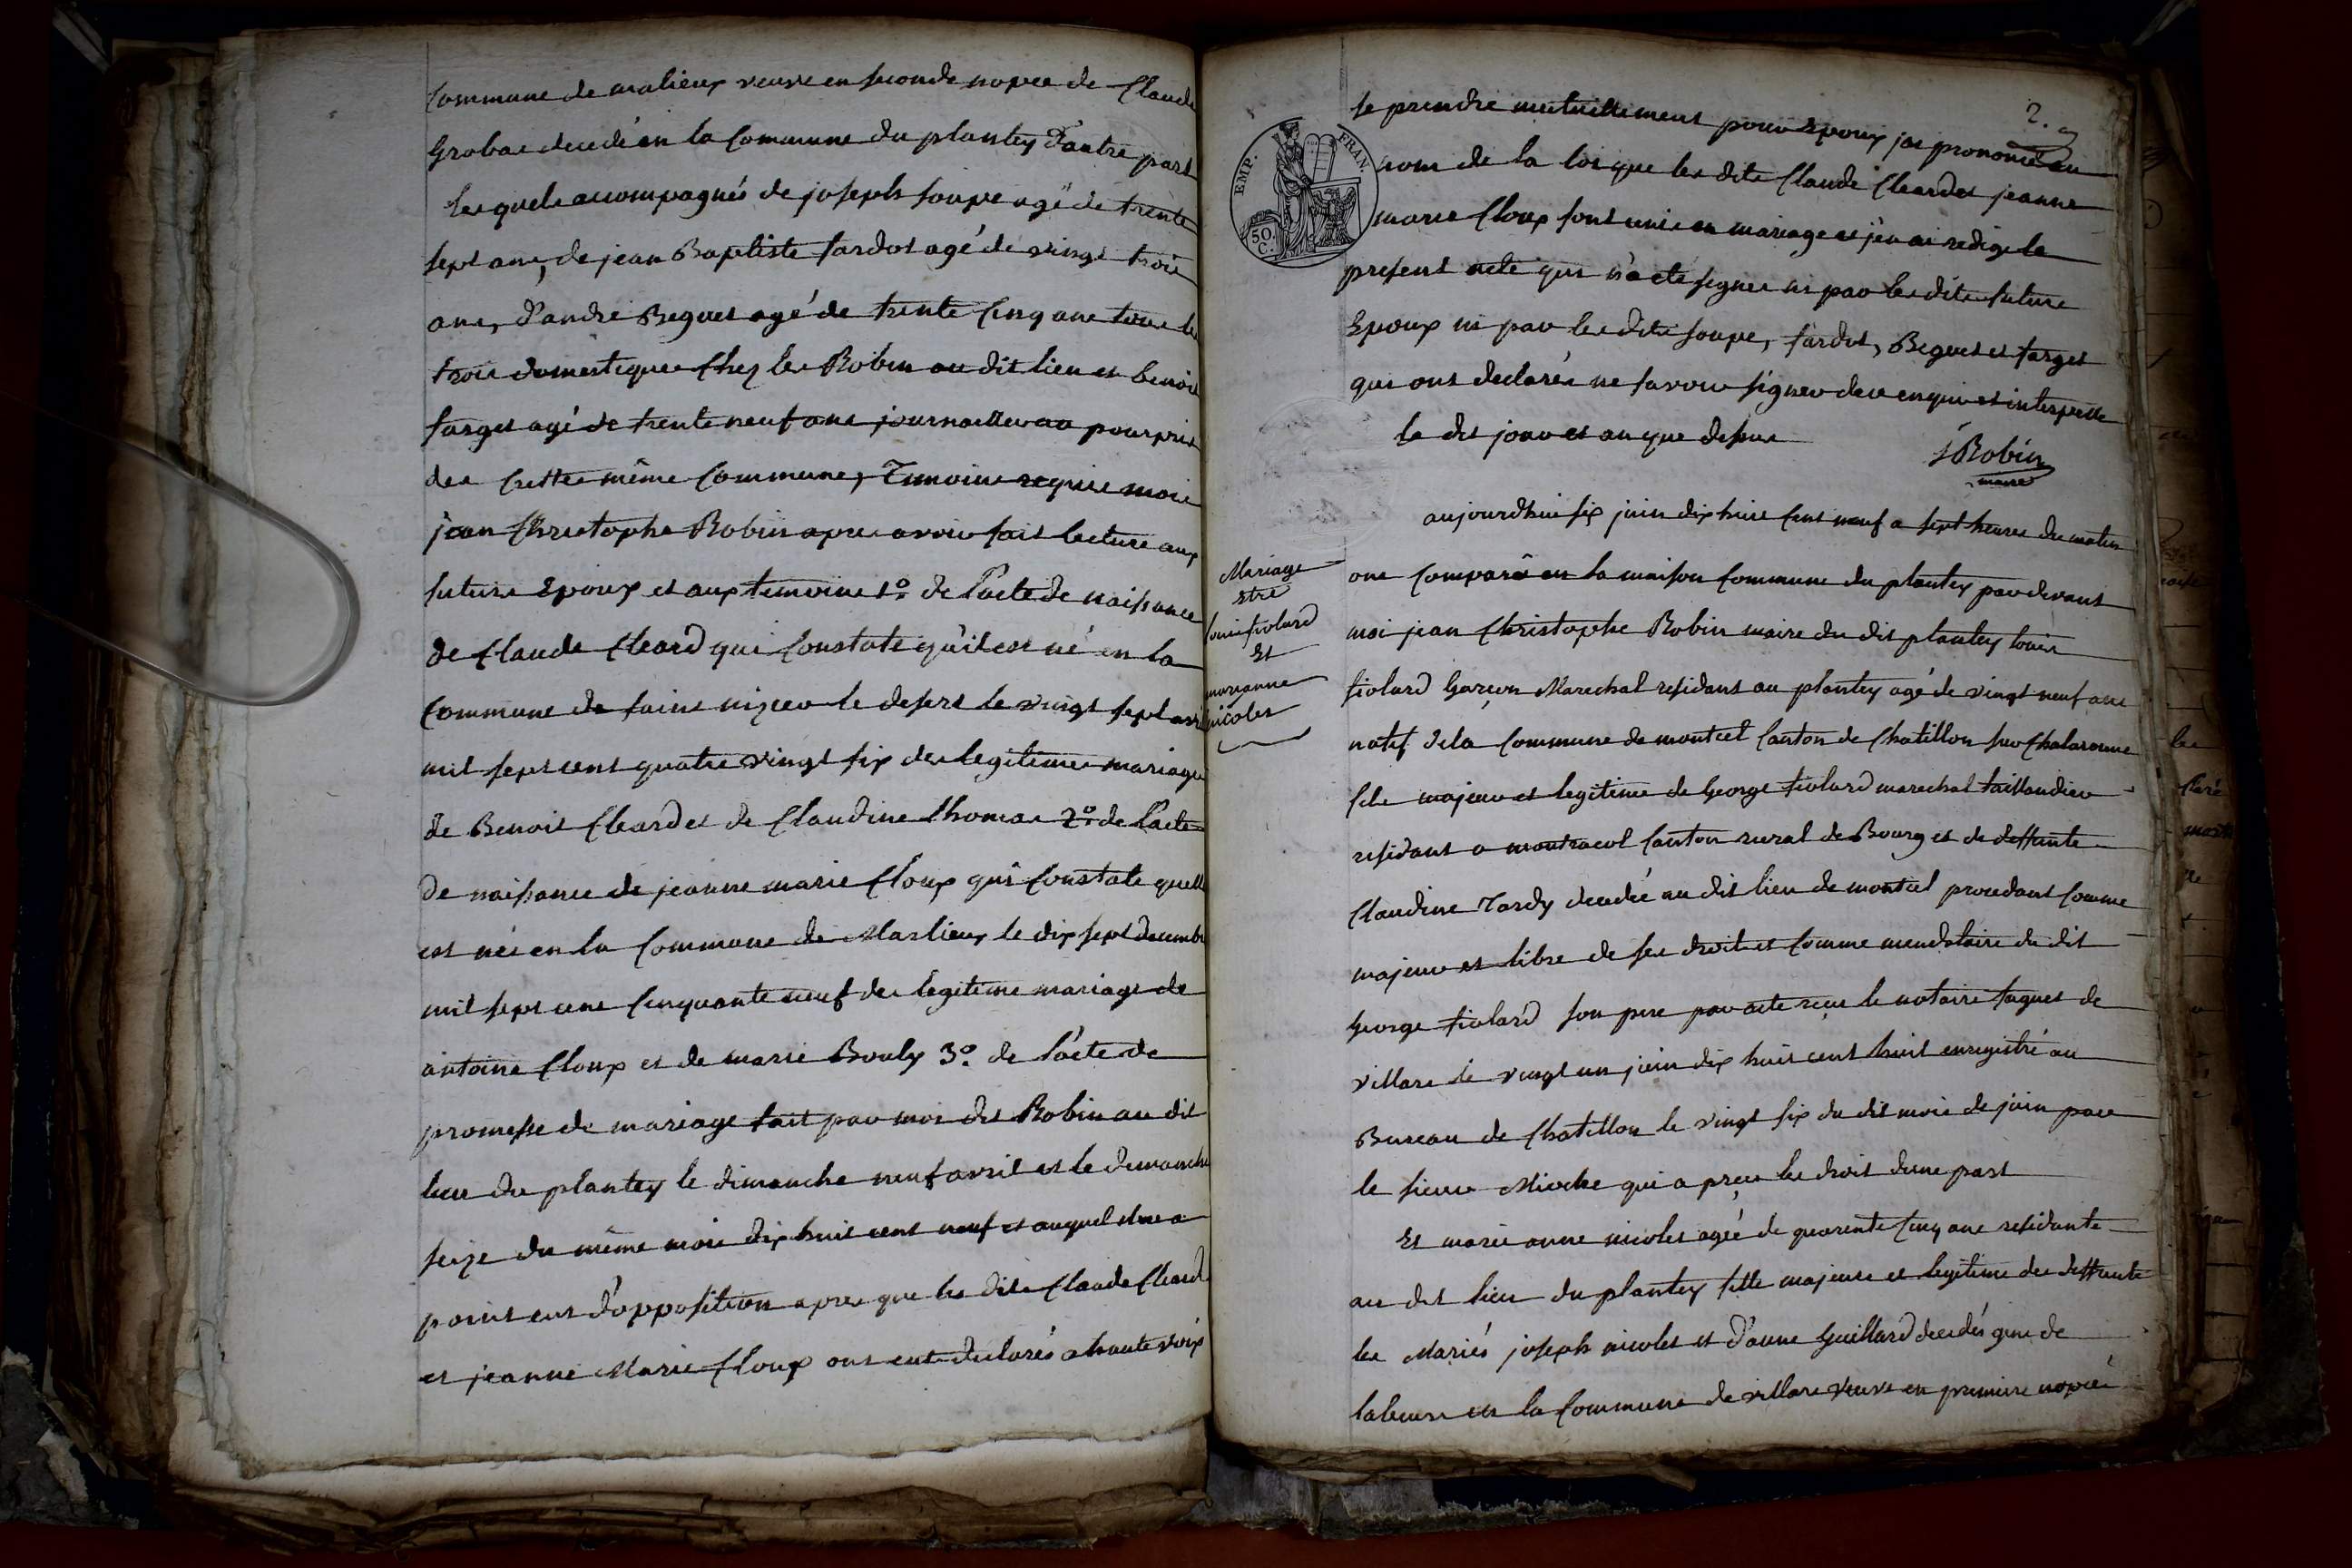 Commune de malieux veuve en seconde nopce de Claude
Grobas decedé en la Commune du plantey d'autre part
les quels accompagnés de joseph soupe agé de trente
sept ans, de jean Baptiste fardot agé de vingt trois
ans, d'andré Beguet agé de trente cinq ans tous les
trois domestiques chez les Robin au dit lieu et benoit
farget agé de trente neuf ans journallier au pourprix
des cette même Commune, Temoins requis moi
jean Christophe Robin apres avoir fait lecture aux
futurs Epoux et aux temoins 1º. de l'acte de naissance
de Claude Cleard qui Constate qu'il est né en la
Commune de saint nizier le desert le vingt sept avril
mil sept cent quatre vingt six des legitimes mariage
de Benoit Cleard et de Claudine thomas 2º. de l'acte
de naissance de jeanne marie Cloup qui Constate quelle
est née en la Commune de Marlieux le dix sept decembre
mil sept cent cinquante neuf des legitime mariage de
antoine Cloup et de marie Bouly 3º. de l'acte de
promesse de mariage fait par moi dit Robin au dit
lieu du plantey le dimanche neuf avril et le dimanche
seize du même mois dix huit cent neuf et auquel il ne a
point eut d'opposition apres que les dits Claude Cleard
et jeanne Marie Cloup ont eut declarés a haute voix
2.
se prendre mutuellement pour Epoux jai prononcé au
EMP. FRAN.
50. C.
nom de la loi que les dits Claude Cleard et jeanne
marie Cloup sont unis en mariage et j'en ai redigé le
present acte qui n'a eté signer ni par les dits futurs
Epoux ni par les dits soupe, fardot, Beguet et farget
qui ont declarés ne savoir signer de ce enquis et interpellé
le dit jour et an que dessus
Robin
maire
Mariage
entre
louis fiolard
Et
marianne
nicolet
aujourdhui six juin dix huit cent neuf a sept heures du matin
ont Comparû en la maison Commune du plantey par devant
moi jean Christophe Robin maire du dit plantey louis
fiolard Garçon Marechal residant au plantey agé de vingt neuf ans
natif dela Commune de montcel Canton de Chatillon sur Chalaronne
fils majeur et legitime de George fiolard marechal taillandier
residant a montracol Canton rural de Bourg et de deffunte
Claudine Tardy decedée au dit lieu de montcel procedant Comme
majeur et libre de ses droit et Comme mendataire du dit
George fiolard son pere par acte reçu le notaire faguet de
villars le vingt un juin dix huit cent huit enregistré au
Bureau de Chatillon le vingt six du dit mois de juin par
le sieur Mioche qui a perçu les droit dune part
Et marie anne nicolet agée de quarente cinq ans residante
au dit lieu du plantey fille majeure et legitime des deffunte
les Mariés joseph nicolet et d'anne Guillard decedés gens de
labeurs en la Commune de villars veuve en premiere nopce